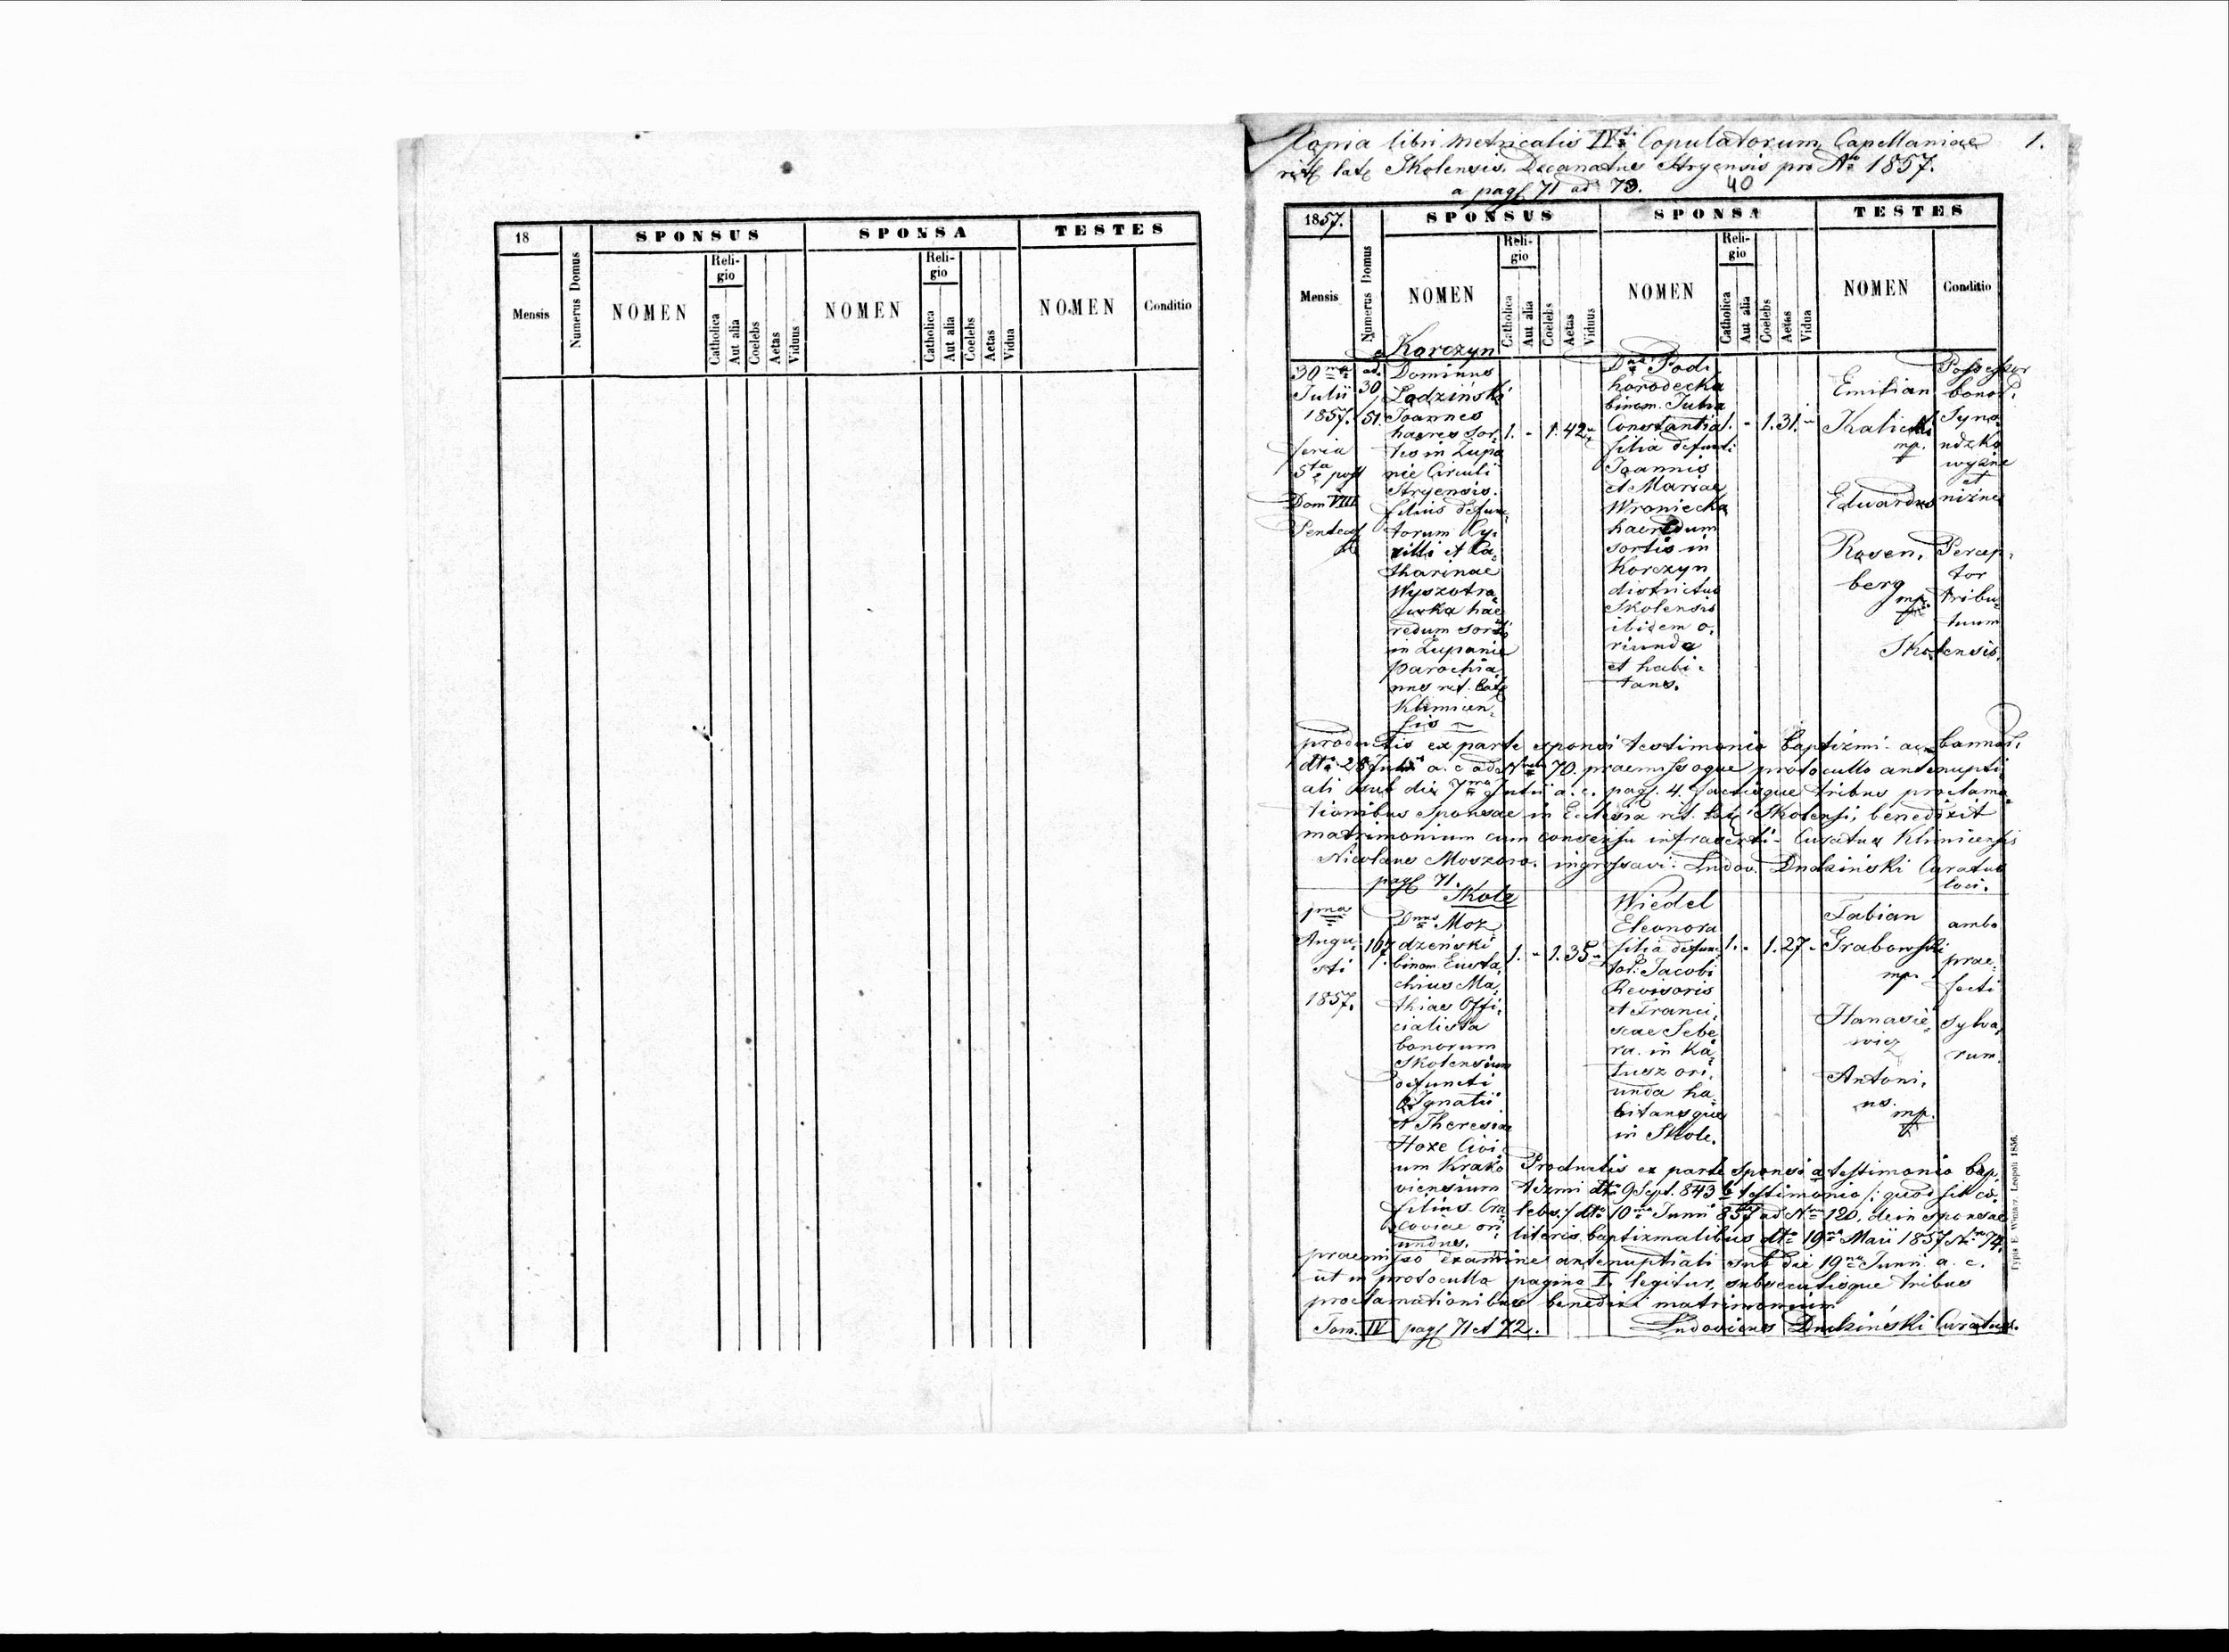 18
SPONSUS
SPONSA
TESTES
Mensis
Numerus Domus
NOMEN
Religio
Catholica
Aut alia
Coelebs
Aetas
Viduus
NOMEN
Religio
Catholica
Aut alia
Coelebs
Aetas
Vidua
NOMEN
Conditio
Copia libri metricalis IV Copulatorum Capellaniae
1.
rit. lat. Skolensis Decanatus Stryensis pro Ao 1857.
a pag 71 ad 73.
40
1857.
SPONSUS
SPONSA
TESTES
Mensis
Numerus Domus
NOMEN
Religio
Catholica
Aut alia
Coelebs
Aetas
Viduus
NOMEN
Religio
Catholica
Aut alia
Coelebs
Aetas
Vidua
NOMEN
Conditio
Korczyn
30
Julii
1857.
feria
5ta post
Dom VIII
Pentec
ad.
30
51.
Dominus
Ladziński
Joannes
haeres sor-
tis in Zupa
nie Circuli
Stryensis.
filius defunc
torum Cy-
rilli et Ca-
tharinae
Wyszotra-
wka hae
redum sortis
in Zupanie
parochia
nus rit. lat
Klimicen-
sis
1. - 1. 42
Dna Pod-
horodecka
binom. Julia
Constantia
filia defuncti
Joannis
et Mariae
Wroniecka
haeredum
sortis in
Korczyn
districtus
Skolensis
ibidem o-
riunda
et habi-
tans.
1. - 1. 31. -
Emilian
Kalicki
mp.
Eduardus
Rosen-
berg
mp.
Possessor
bonor
Syno-
udzko
wyzne
et
nizne
Percep-
tor
tribu-
tuum
Skolensis.
productis ex parte sponsi testimonio baptizmi ac bannor.
dto 28 Julii a. c. ad Nrum 70. praemissoque protocullo antenupti
ali sub die 7ma Julii a. c. pag. 4. factisque tribus proclama-
tionibus Sponsae in Ecclesia rit. lat. Skolensi, benedixit
matrimonium cum consensu infrascripti Curatus Klimicensis
Nicolaus Moszoro. ingrossavi. Ludov. Dudziński Curatus
loci.
pag 71.
Skole
1ma
Augu-
sti
1857.
107.
Dnus Moz
dzeński
binom. Eusta-
chius Ma-
thias Offi-
cialista
bonorum
Skolensium
defuncti
Ignatii
et Theresiae
Hoxe Civi-
um Krako
viensium
filius. Cra-
coviae ori-
undus.
1. - 1. 35 -
Wiedel
Eleonora
filia defunc
tor. Jacobi
Revisoris
et Franci-
scae Sebe-
ra. in Ka-
lusz ori-
unda ha-
bitansque
in Skole.
1. - 1. 27 -
Fabian
Grabowski
mp.
Hanasie-
wicz
Antoni-
us.
mp.
ambo
prae-
fecti
sylva-
rum.
Productis ex parte sponsi a testimonio bap-
tizmi dto 9 Sept. 843 b testimonio /: quod sit cö-
lebs :/ dto 10 Junii 857 ad Nrum 120. dein sponsae
literis baptizmalibus dto 19 Maii 1857 Nro 74.
praemisso examine antenuptiali sub die 19na Junii a. c.
ut in protocullo pagina I. legitur, subsecutisque tribus
proclamationibus benedixi matrimonium
Tom. IV pag 71 et 72.
Ludovicus Dudziński Curatus.
Typis E. Winiarz. Leopoli 1856.